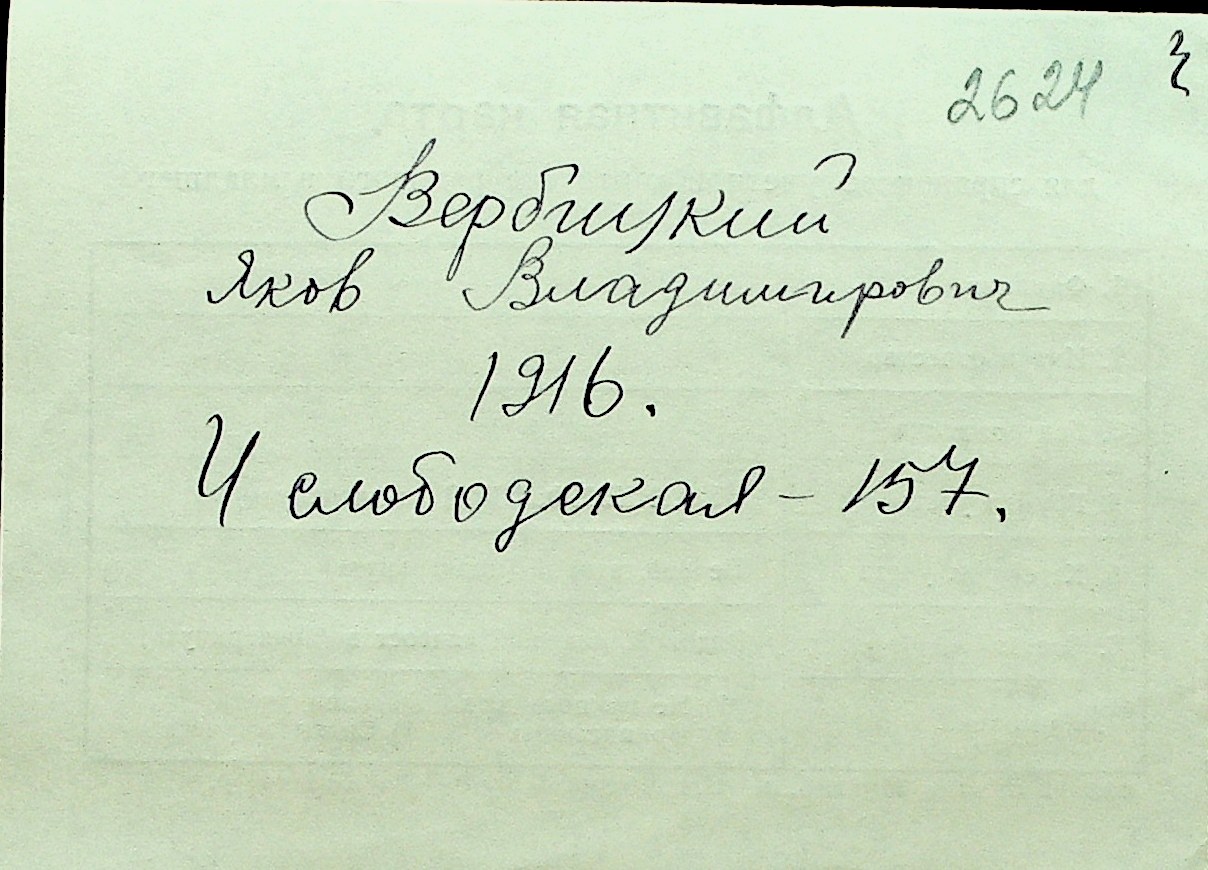 2624
Вербицкий
Яков Владимирович
1916.
4 слободская - 157.